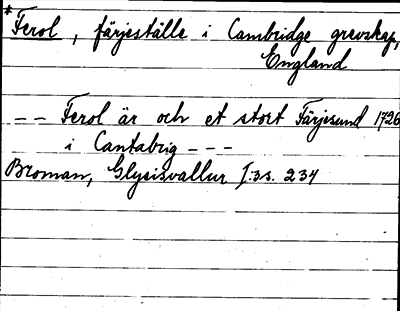 *Ferol, färjeställe i Cambridge grevskap,
England
-- Ferol är och et stort Färjesund 1726
i Cantabrig ---
Broman, Glysisvallur I:3 s. 234